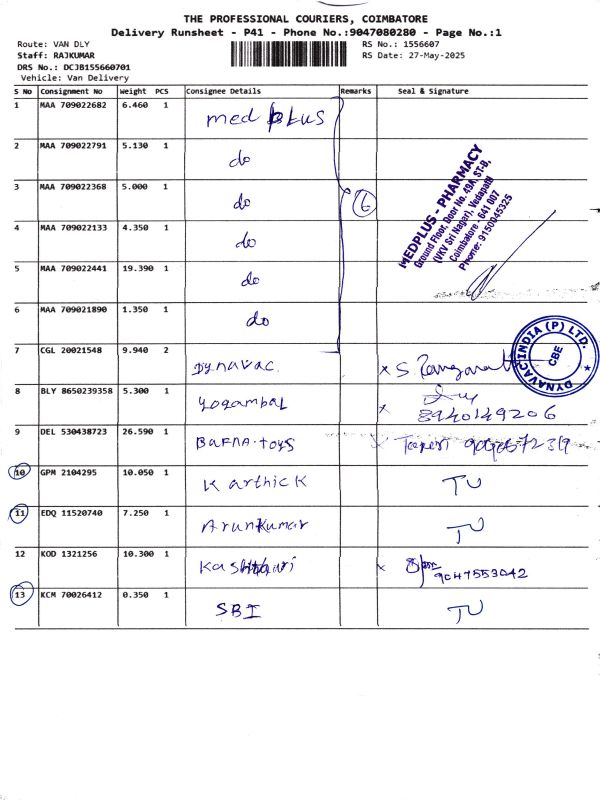 THE PROFESSIONAL COURIERS, COIMBATORE
Delivery Runsheet - P41 - Phone No.:9047080280 - Page No.:1
Route: VAN DLY
Staff: RAJKUMAR
DRS No.: DCJB155660701
Vehicle: Van Delivery
RS No.: 1556607
RS Date: 27-May-2025
S No Consignment No Weight PCS Consignee Details Remarks Seal & Signature
1 MAA 709022682 6.460 1 med plus
2 MAA 709022791 5.130 1 do
3 MAA 709022368 5.000 1 do 6
4 MAA 709022133 4.350 1 do
5 MAA 709022441 19.390 1 do
6 MAA 709021890 1.350 1 do
MEDPLUS - PHARMACY
Ground Floor, Door No. 49A, ST-B,
(VKV Sri Nagar), Vedapatti
Coimbatore - 641 007
Phone: 9150045325
7 CGL 20021548 9.940 2 Dynavac x S
DYNAVAC INDIA (P) LTD.
CBE
8 BLY 8650239358 5.300 1 yogambal x 8940149206
9 DEL 530438723 26.590 1 Barna toys
10 GPM 2104295 10.050 1 Karthick TU
11 EDQ 11520740 7.250 1 Arunkumar TU
12 KOD 1321256 10.300 1 x 9047553042
13 KCM 70026412 0.350 1 SBI TU